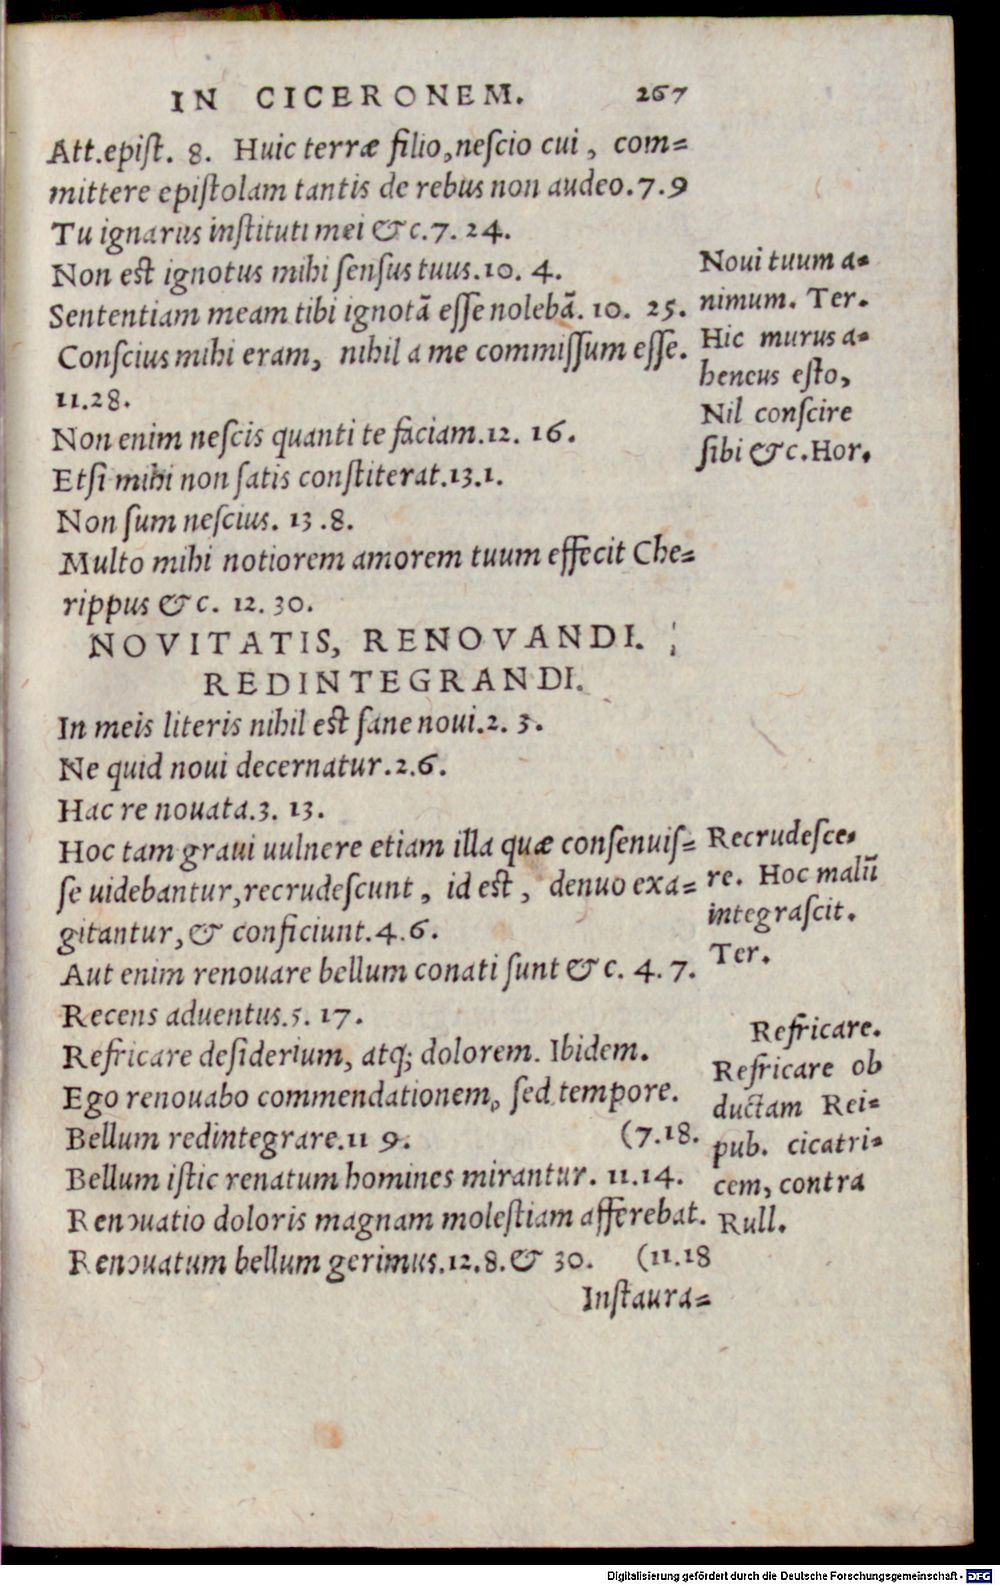 IN CICERONEM. 267
Att.epiſt. 8. Huic terræ filio,neſcio cui, com=
mittere epiſtolam tantis de rebus non audeo.7.9
Tu ignarus inſtituti mei &c.7. 24.
Non est ignotus mihi ſenſus tuus.10. 4.
Sententiam meam tibi ignotã eſſe nolebã. 10. 25.
Conſcius mihi eram, nihil a me commiſſum eſſe.
11.28.
Non enim neſcis quanti te faciam.12. 16.
Etſi mihi non ſatis conſtiterat.13.1.
Non ſum neſcius. 13.8.
Multo mihi notiorem amorem tuum effecit Che=
rippus &c. 12. 30.
Noui tuum a=
nimum. Ter.
Hic murus a=
heneus eſto,
Nil conſcire
ſibi &c.Hor.
NOVITATIS, RENOVANDI.
REDINTEGRANDI.
In meis literis nihil est ſane noui.2. 3.
Ne quid noui decernatur.2.6.
Hac re nouata.3. 13.
Hoc tam graui uulnere etiam illa quæ conſenuiſ=
ſe uidebantur,recrudeſcunt, id est, denuo exa=
gitantur,& conficiunt.4.6.
Aut enim renouare bellum conati ſunt &c. 4. 7.
Recens aduentus.5. 17.
Refricare deſiderium, atq; dolorem. Ibidem.
Ego renouabo commendationem, ſed tempore.
Bellum redintegrare.11 9. (7.18.
Bellum iſtic renatum homines mirantur. 11.14.
Renouatio doloris magnam moleſtiam afferebat.
Renouatum bellum gerimus.12.8.& 30. (11.18
Recrudeſce=
re. Hoc malũ
integraſcit.
Ter.
Refricare.
Refricare ob
ductam Rei=
pub. cicatri=
cem, contra
Rull.
Inſtaura=
Digitalisierung gefördert durch die Deutsche Forschungsgemeinschaft - DFG